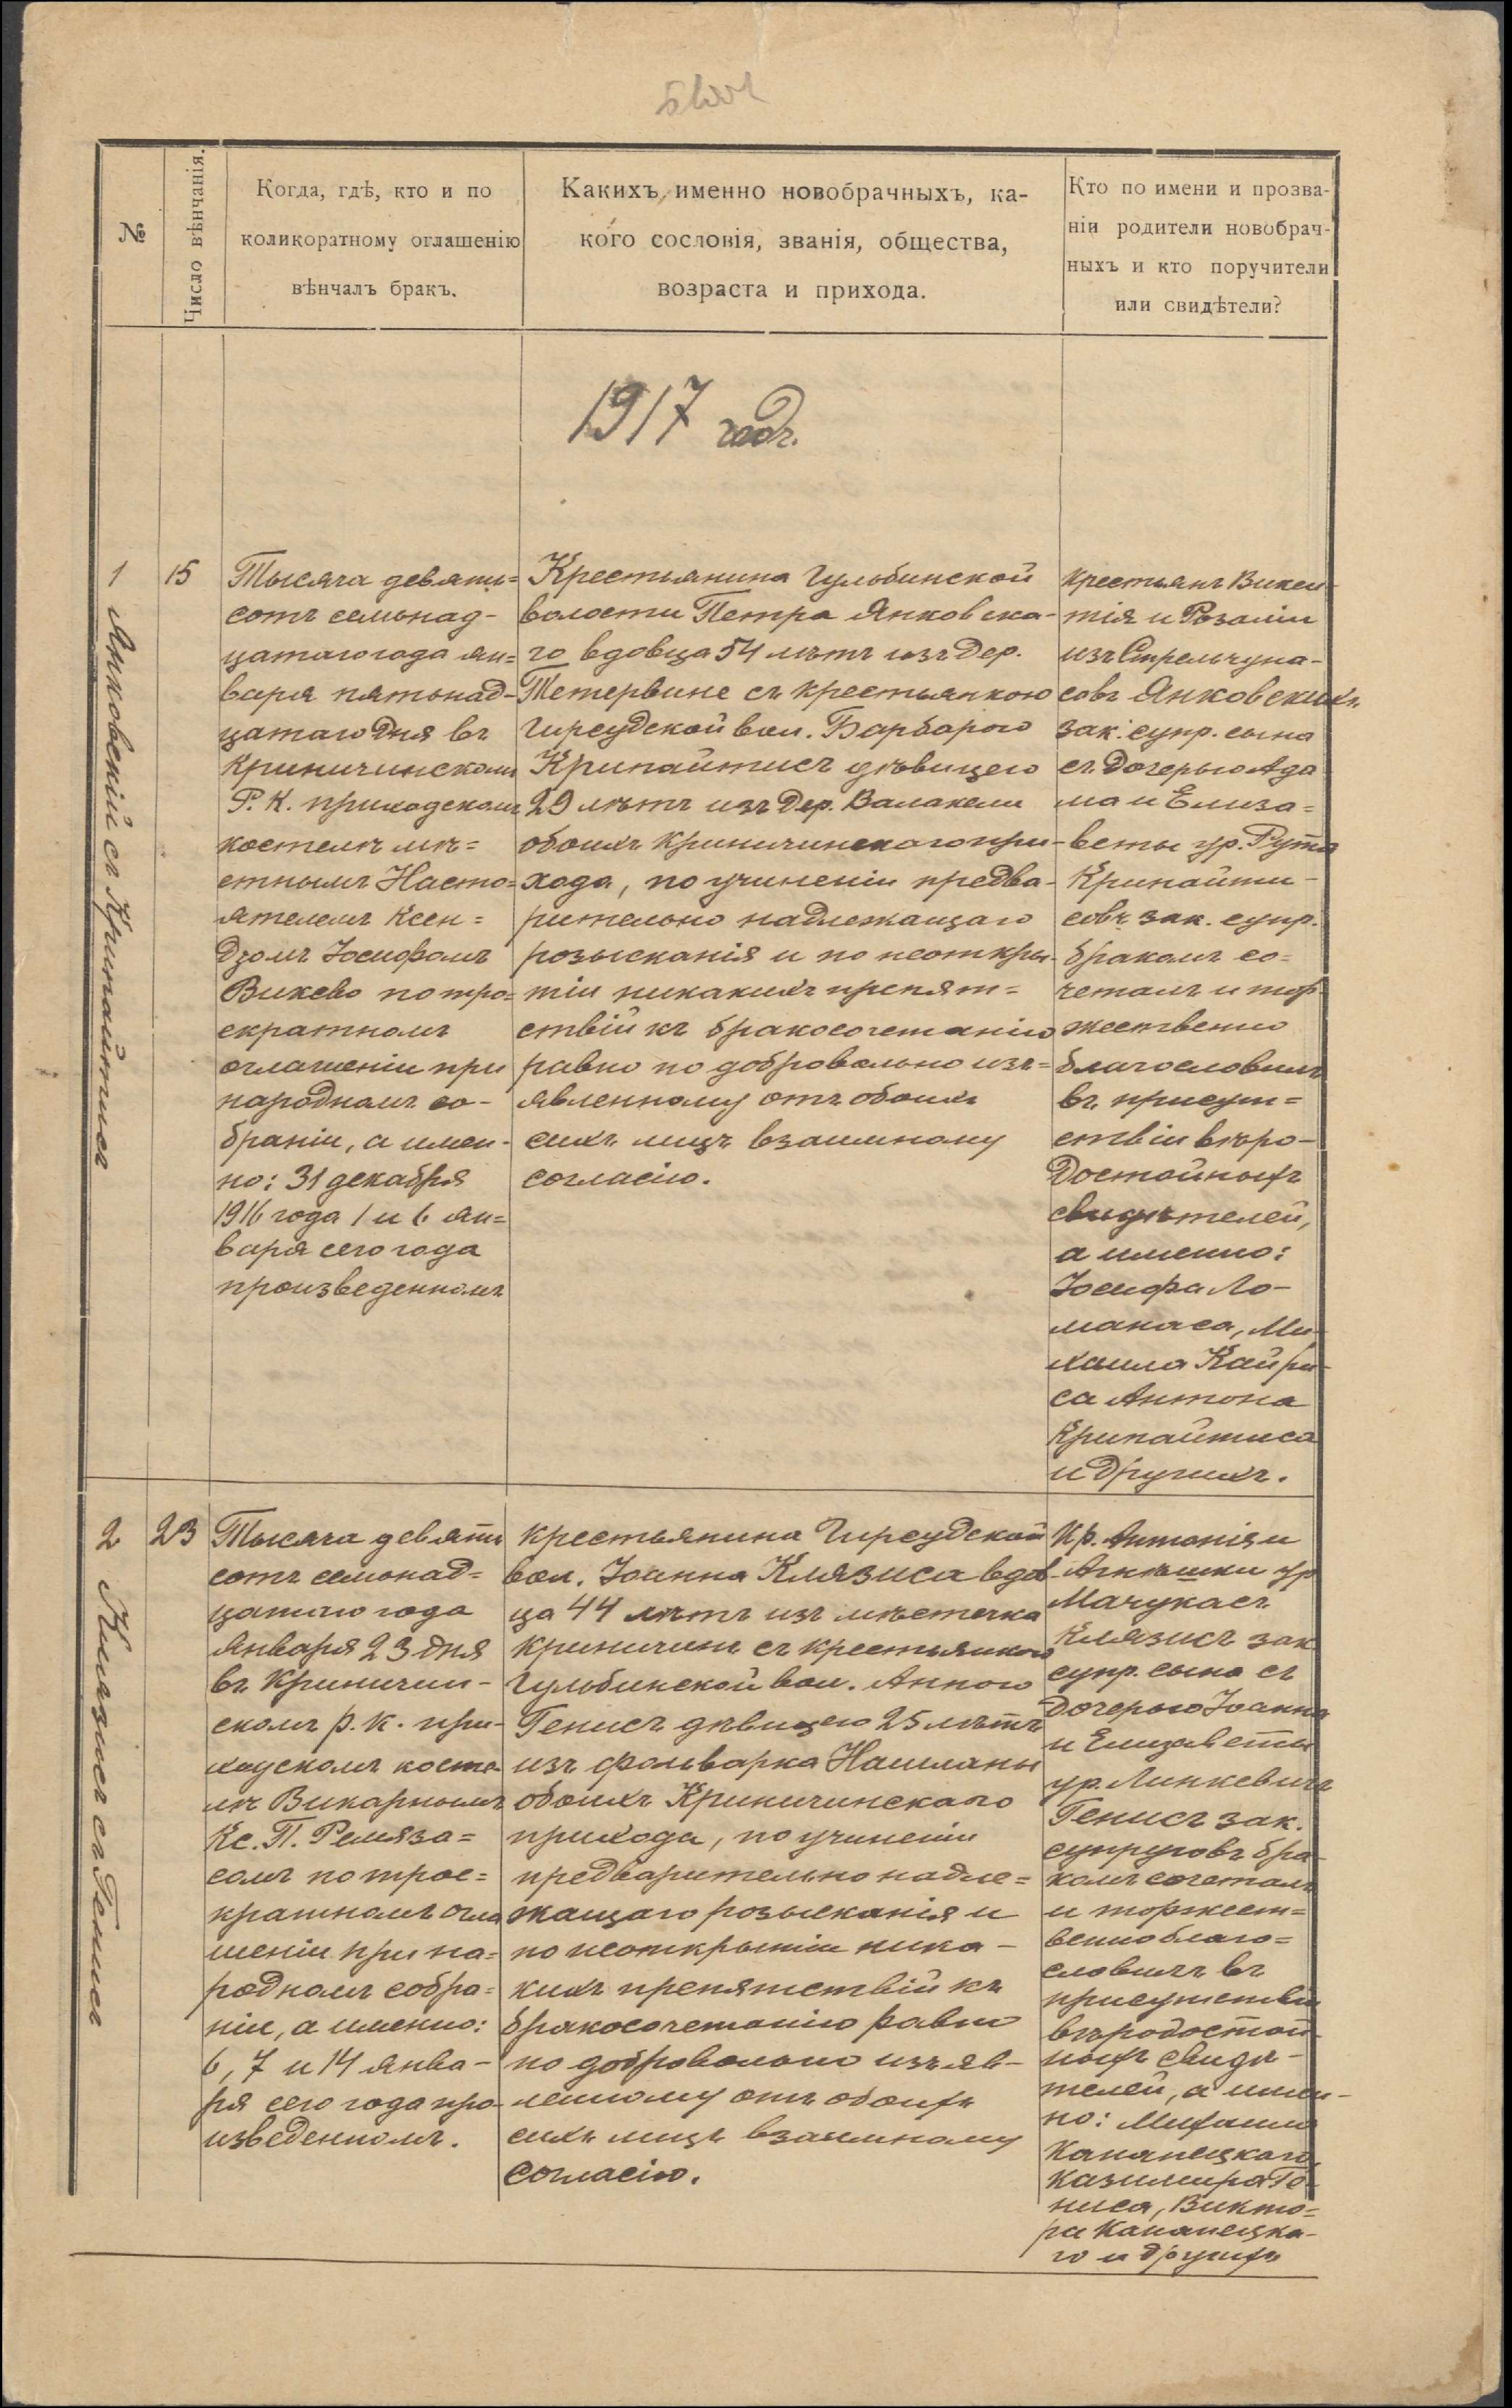 №
Число вѣнчанія.
Когда, гдѣ, кто и по
коликоратному оглашенію
вѣнчалъ бракъ.
Какихъ именно новобрачныхъ, ка-
кого сословія, званія, общества,
возраста и прихода.
Кто по имени и прозва-
ніи родители новобрач-
ныхъ и кто поручители
или свидѣтели?
1917 годъ.
1
Янковскій съ Крипайтисъ
15
Тысяча девять=
сотъ семьнад-
цатаго года ян=
варя пятьнад-
цатаго дня въ
Криничинскомъ
Р. К. приходскомъ
костелѣ мѣ=
стнымъ Насто=
ятелемъ Ксен=
дзомъ Іосифомъ
Виксво по тро=
екратномъ
оглашеніи при
народномъ со-
браніи, а имен-
но: 31 декабря
1916 года 1 и 6 ян=
варя сего года
произведенномъ
Крестьянина Гульбинской
волости Петра Янковска-
го вдовца 54 лѣтъ изъ дер.
Тетервине съ крестьянкою
Гирсудской вол. Барбарою
Крипайтисъ дѣвицею
29 лѣтъ изъ дер. Валакели
обоихъ Криничинскаго при-
хода, по учиненіи предва-
рительно надлежащаго
розысканія и по неоткры-
тіи никакихъ препят=
ствій къ бракосочетанію
равно по добровольно изъ=
явленному отъ обоихъ
сихъ лицъ взаимному
согласію.
крестьянъ Викен-
тія и Розаліи
изъ Стрельчуна-
совъ Янковскихъ
зак. супр. сына
съ дочерью Ада
ма и Елиза=
веты ур. Рута
Крипайти-
совъ зак. супр.
бракомъ со=
четалъ и тор-
жественно
благословилъ
въ присут=
ствіи вѣро-
достойныхъ
свидѣтелей,
а именно:
Іосифа Ло-
манаса, Ми-
хаила Кайри-
са Антона
Крипайтиса
и другихъ.
2
Клязисъ съ Генисъ
23
Тысяча девять
сотъ семьнад=
цатаго года
Января 23 дня
въ Криничин-
скомъ р. к. при-
ходскомъ косте
лѣ Викарнымъ
Кс. П. Ремяза=
сомъ по трое=
кратномъ огла
шеніи при на=
родномъ собра=
ніи, а именно:
6, 7 и 14 янва-
ря сего года про-
изведенномъ.
крестьянина Гирсудской
вол. Іоанна Клязиса вдов-
ца 44 лѣтъ изъ мѣстечка
Криничинъ съ крестьянкою
Гульбинской вол. Анною
Генисъ дѣвицею 25 лѣтъ
изъ фольварка Нашланы
обоихъ Криничинскаго
прихода, по учиненіи
предварительно надле=
жащаго розысканія и
по неоткрытіи ника-
кихъ препятствій къ
бракосочетанію равно
по добровольно изъяв-
ленному отъ обоихъ
сихъ лицъ взаимному
согласію.
Кр. Антонія и
Агнѣшки ур
Мачукасъ
Клязисъ зак
супр. сына съ
дочерью Іоанна
и Елизаветы
ур. Линкевичъ
Генисъ зак.
супруговъ бра-
комъ сочеталъ
и торжест=
венно благо=
словилъ въ
присутствіи
вѣродостой-
ныхъ свидѣ-
телей, а имен-
но: Михаила
Канапецкаго,
Казимира Ге-
ниса, Викто=
ра Канапецка-
го и другихъ